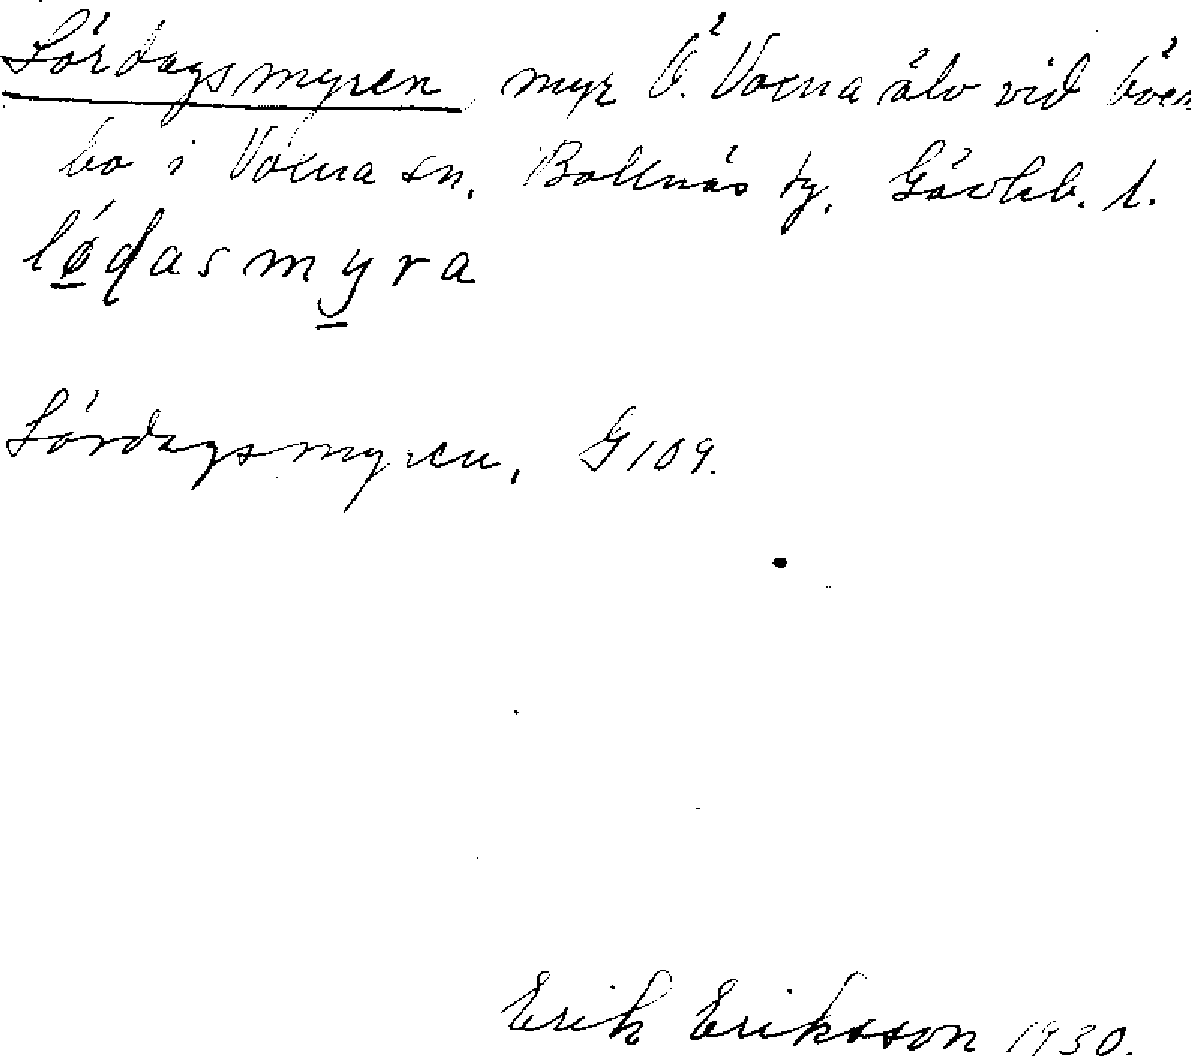 Lördagsmyren myr Ö. Voxna älv vid
bo i Voxna sn. Bollnäs tg. Gävleb. l.
lødasmyra
Lördagsmyren, G109.
Erik Eriksson 1930.